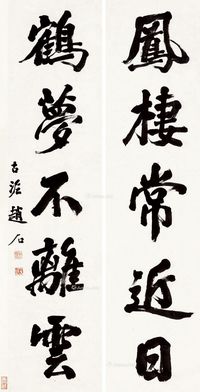 鳳棲常近日
鶴夢不離雲
古泥趙石